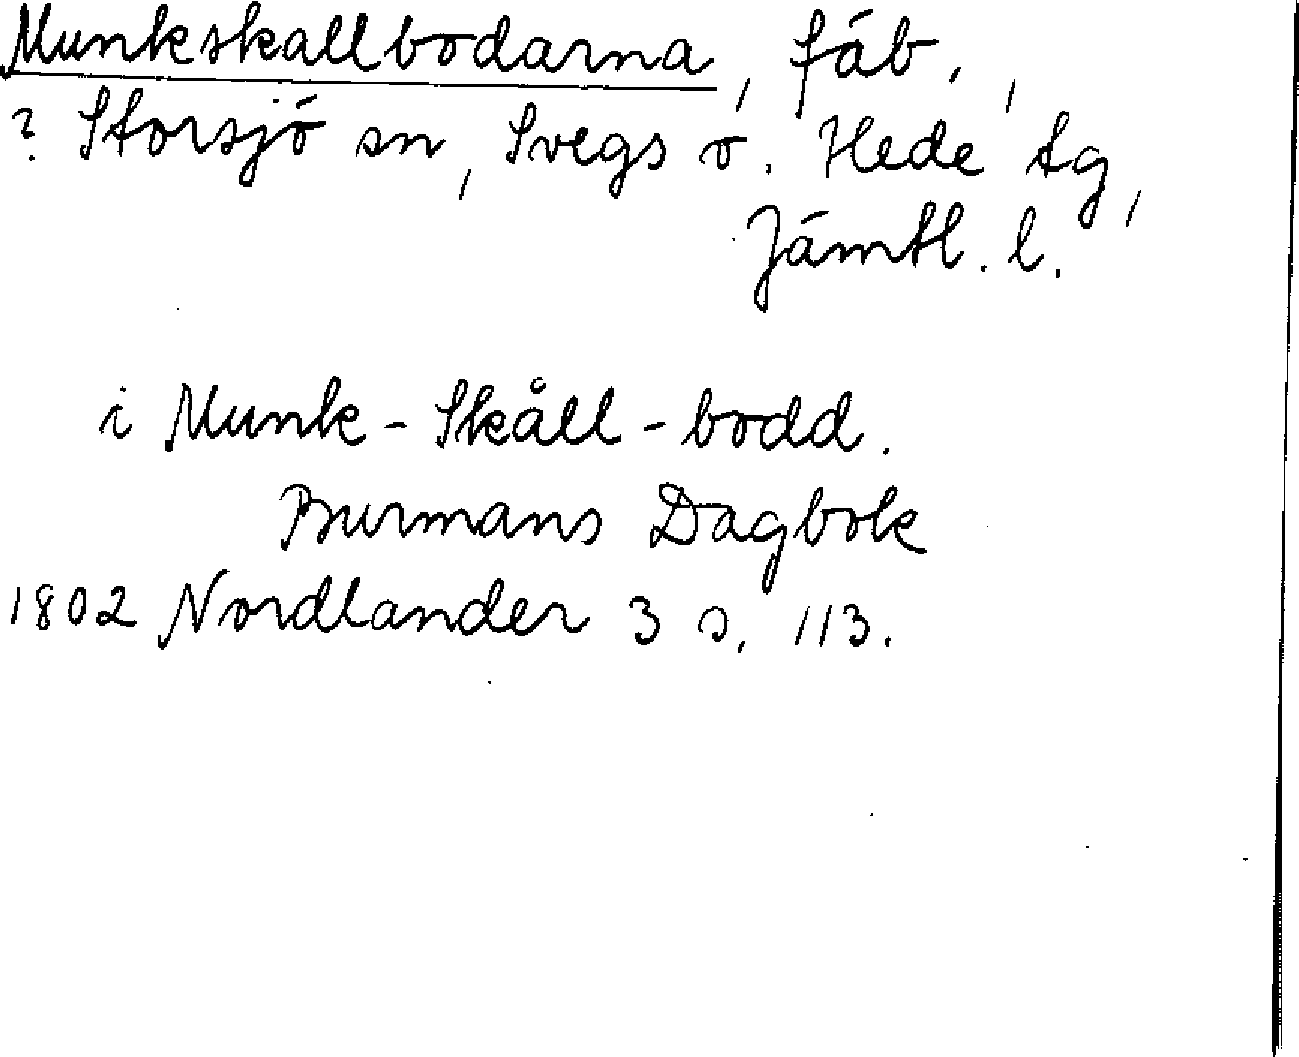 Munkskallbodarna, fäb.,
? Storsjö sn, Svegs o. Hede tg,
Jämtl. l.
i Munk-Skåll-bodd.
Burmans Dagbok
1802 Nordlander 3 s. 113.